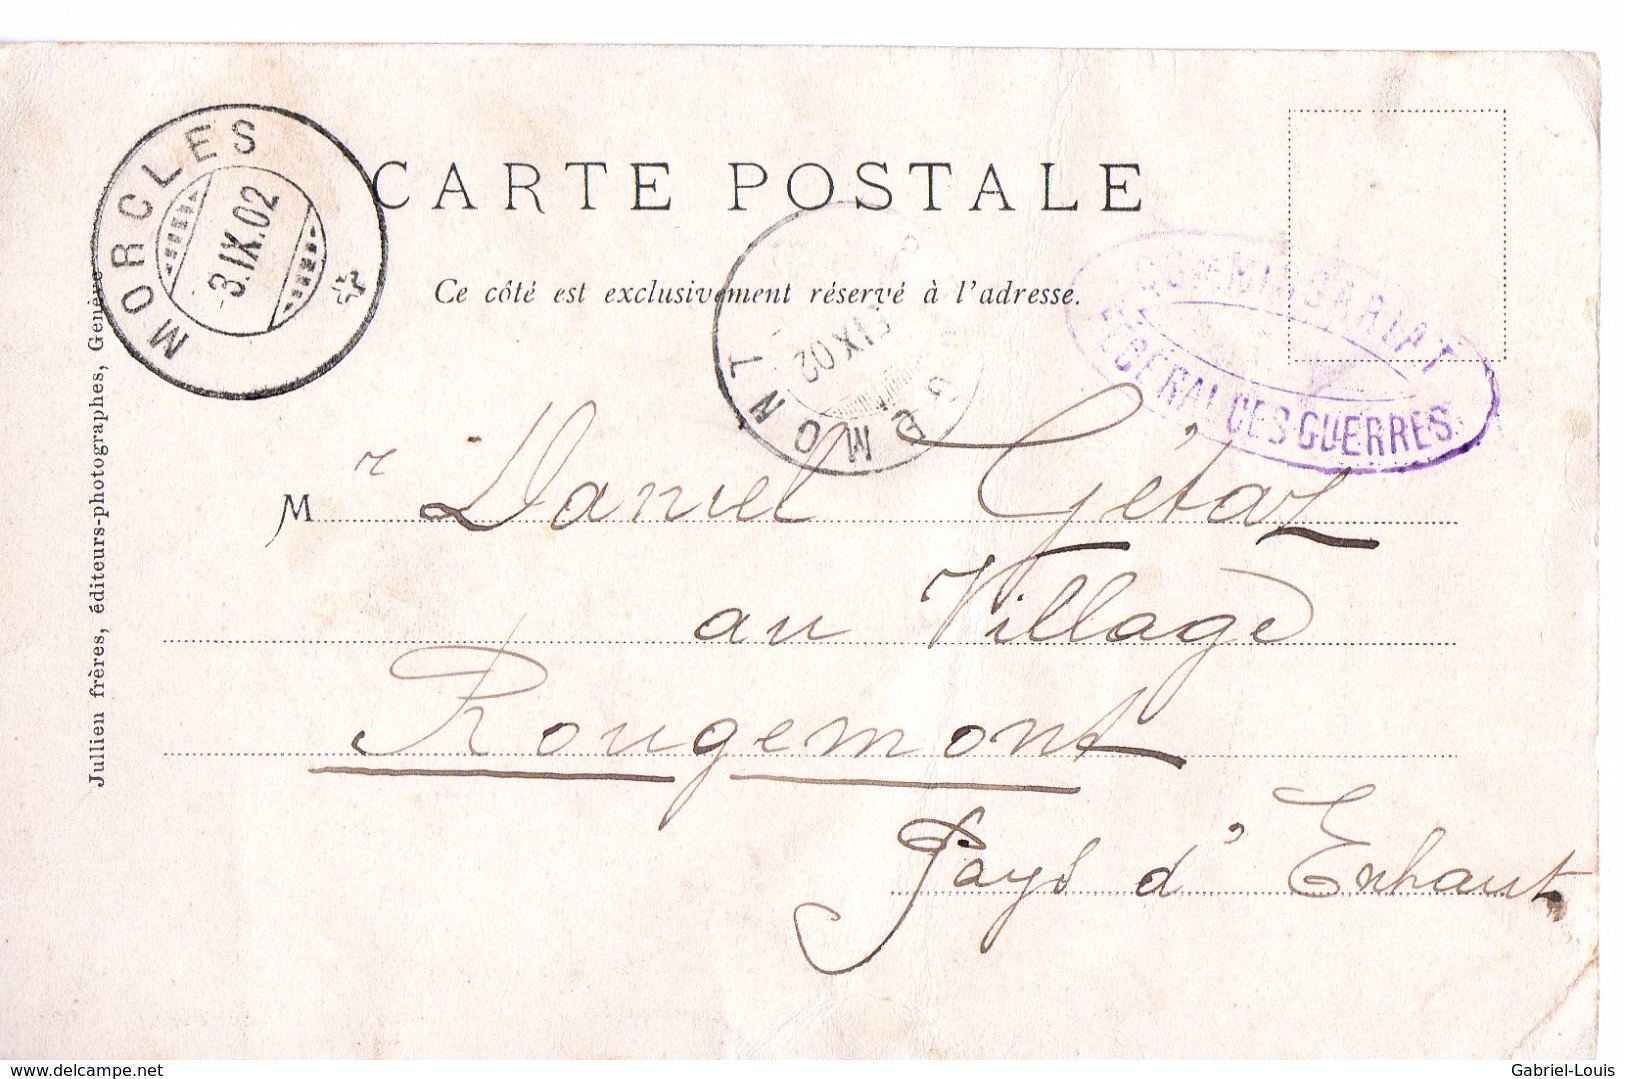 MORCLES
-3.IX.02
CARTE POSTALE
Ce côté est exclusivement réservé à l'adresse.
IX 02
COMMISSARIAT
FÉDÉRAL DES GUERRES.
Mr Daniel Gétaz
au Village
Rougemont
Pays d'Enhaut
Julien frères, éditeurs-photographes, Genève
delcampe.net
Gabriel-Louis